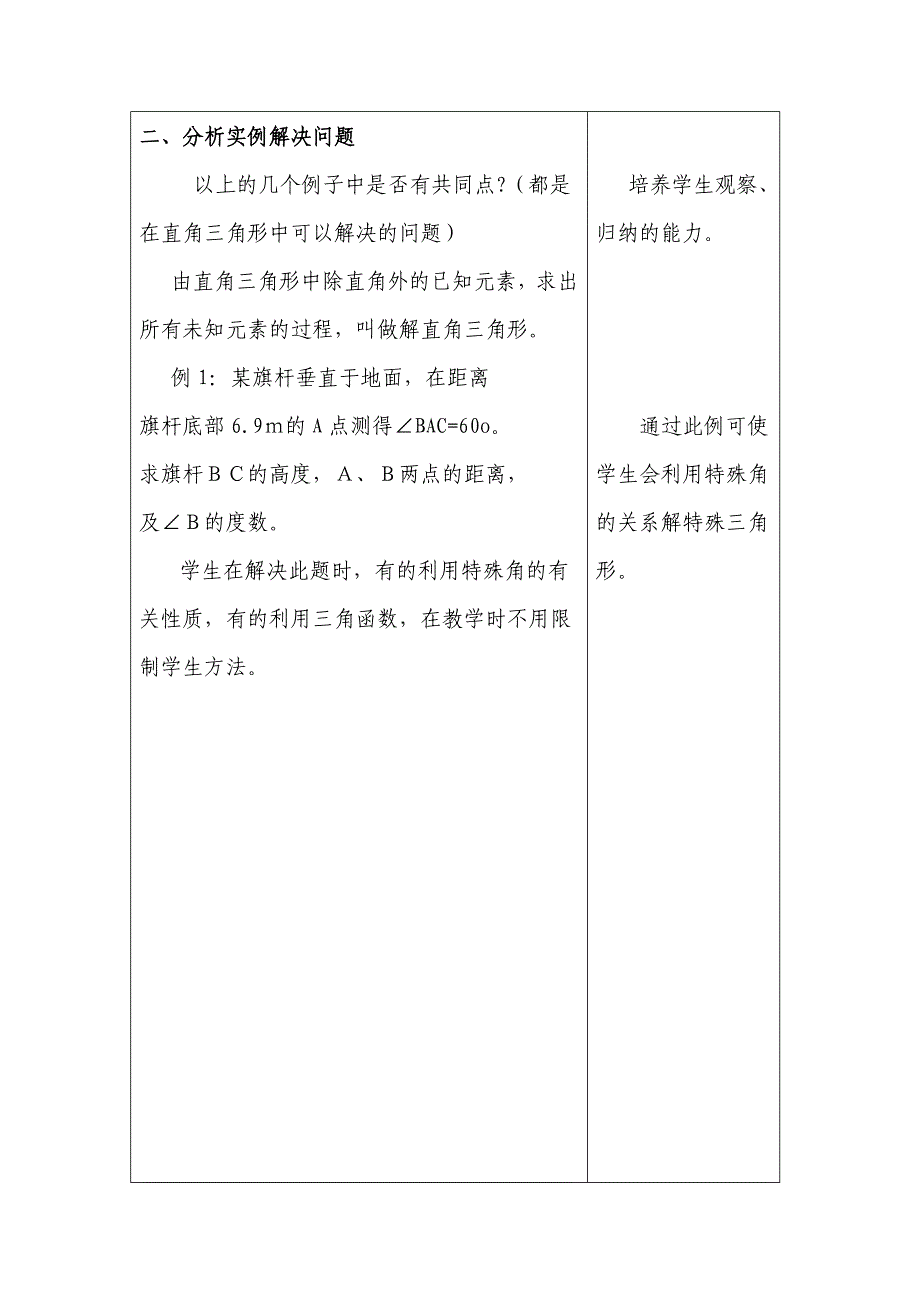 二、分析实例解决问题
以上的几个例子中是否有共同点?(都是
在直角三角形中可以解决的问题)
由直角三角形中除直角外的已知元素,求出
所有未知元素的过程,叫做解直角三角形。
例1:某旗杆垂直于地面,在距离
旗杆底部6.9m的A点测得∠BAC=60o。
求旗杆BC的高度,A、B两点的距离,
及∠B的度数。
学生在解决此题时,有的利用特殊角的有
关性质,有的利用三角函数,在教学时不用限
制学生方法。
培养学生观察、
归纳的能力。
通过此例可使
学生会利用特殊角
的关系解特殊三角
形。